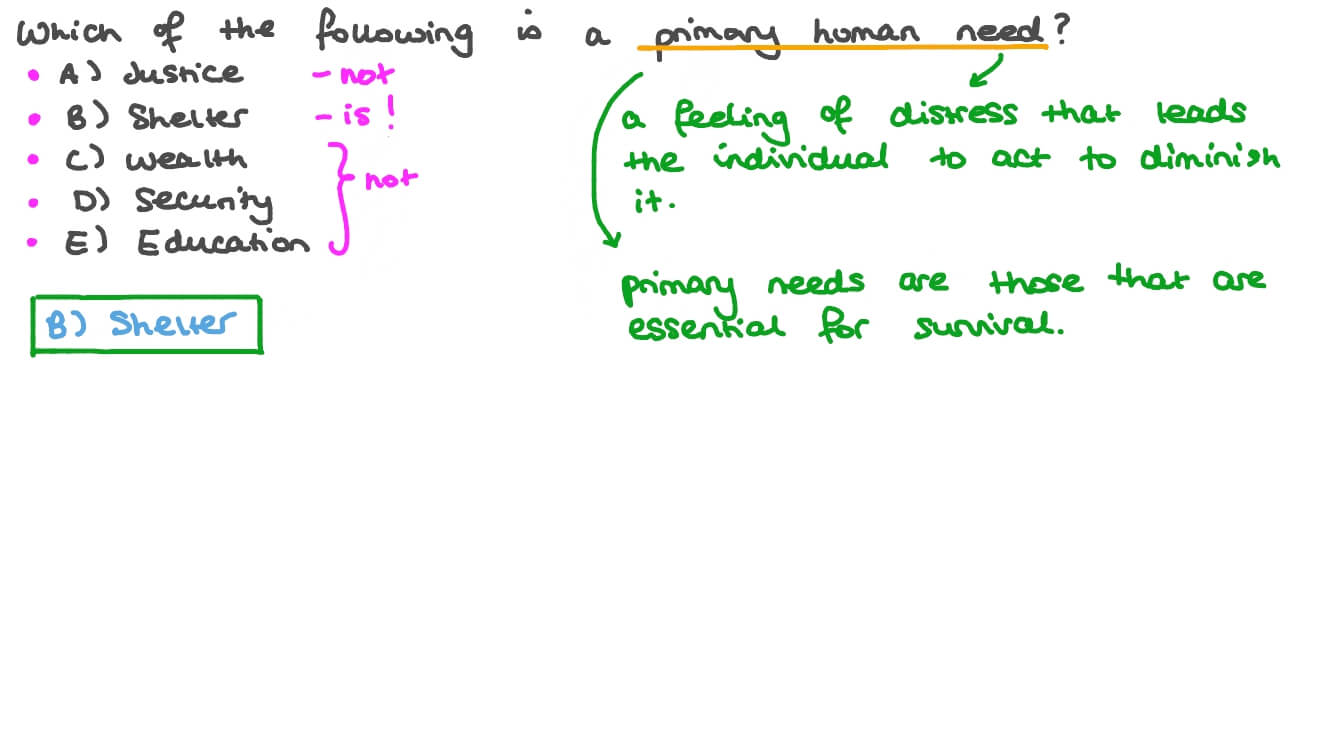 Which of the following is a primary human need?
• A) Justice - not
• B) Shelter - is!
• C) Wealth
• D) Security
• E) Education
} not
B) Shelter
a feeling of distress that leads
the individual to act to diminish
it.
primary needs are those that are
essential for survival.